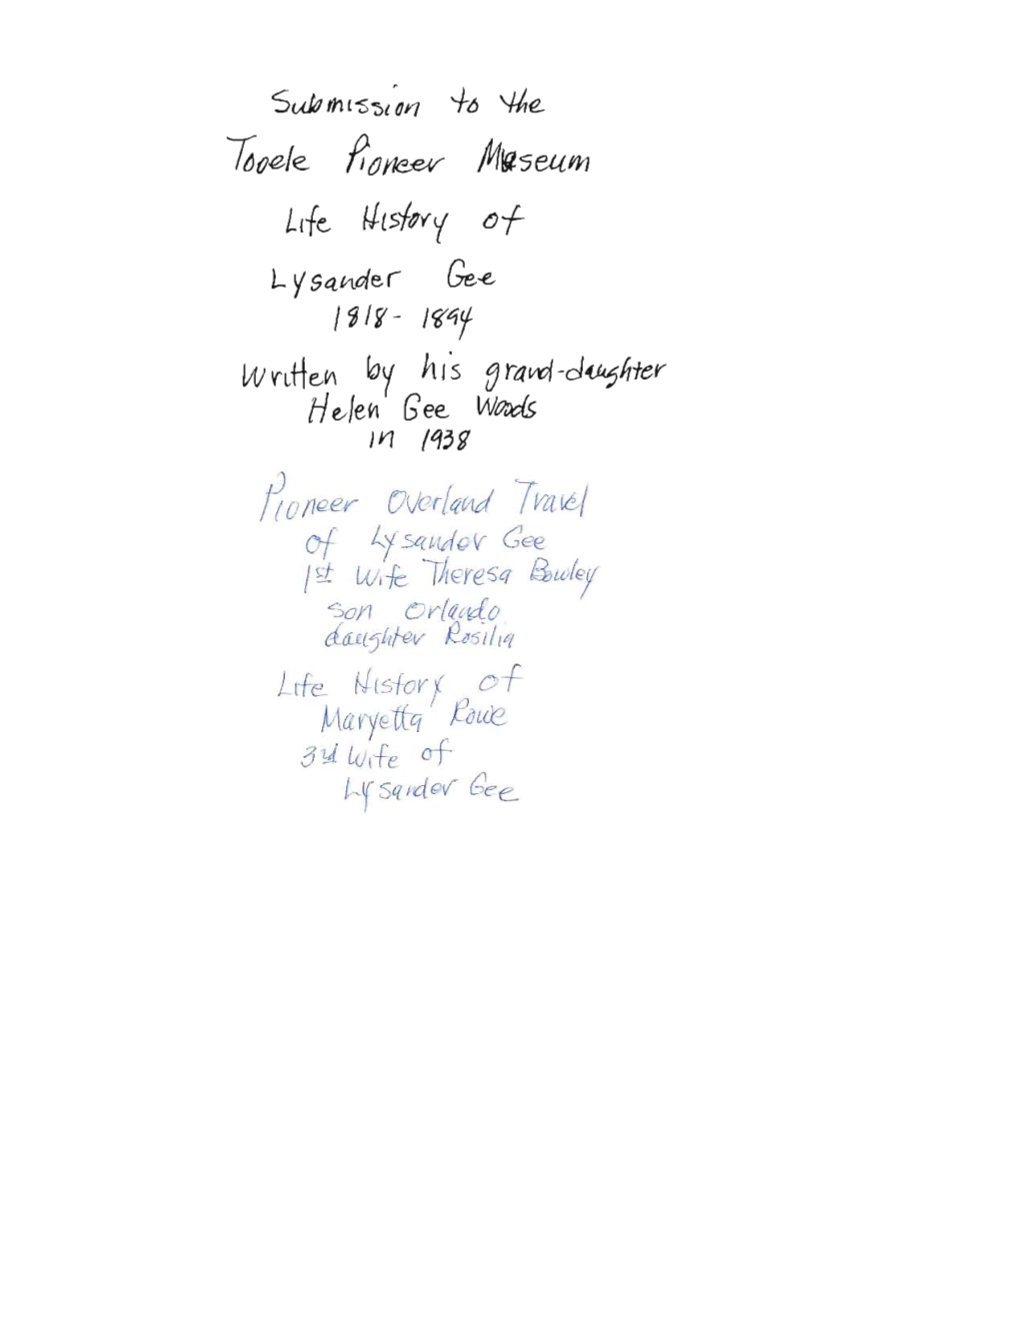 Submission to the
Tooele Pioneer Museum
Life History of
Lysander Gee
1818- 1894
Written by his grand-daughter
Helen Gee Woods
in 1938
Pioneer Overland Travel
of Lysander Gee
1st Wife Theresa Bowley
son Orlando
daughter Rosilia
Life History of
Maryetta Rowe
3rd Wife of
Lysander Gee